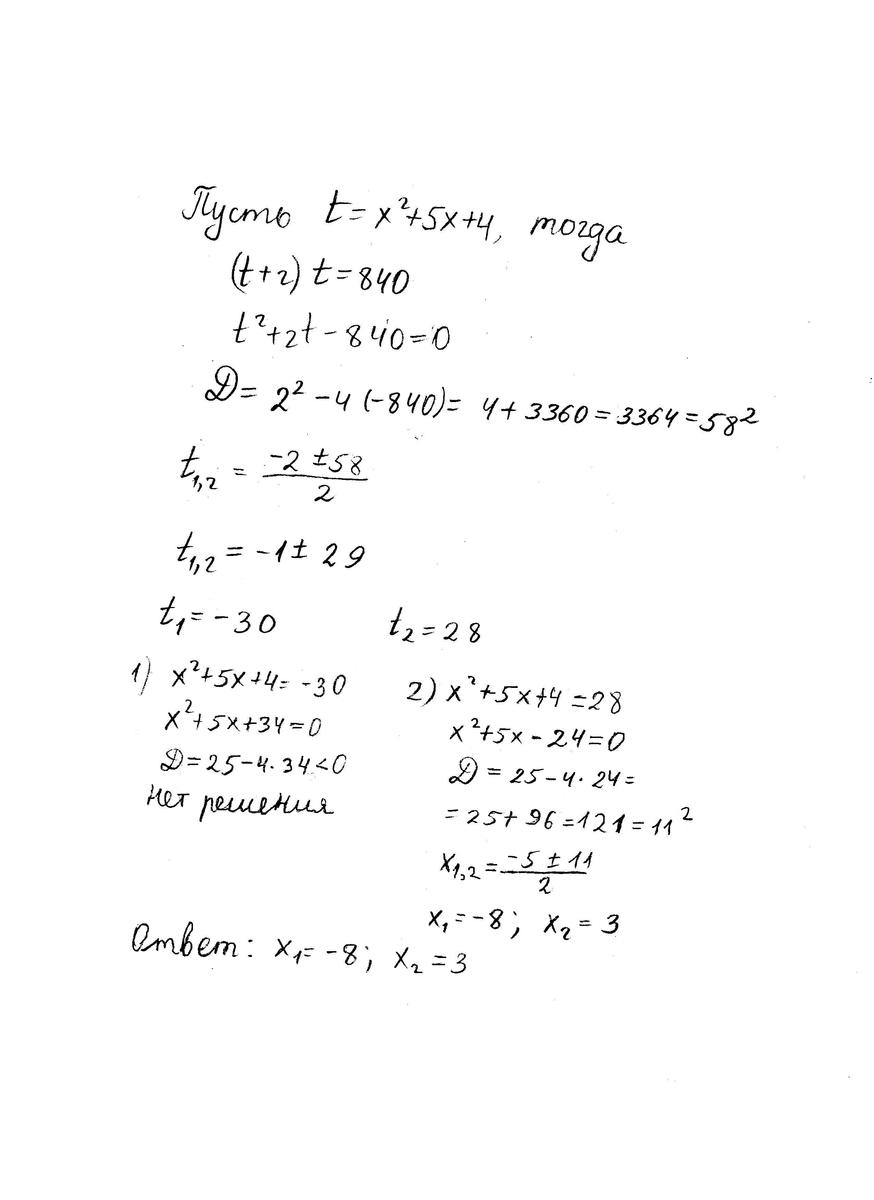 Пусть t = x²+5x+4, тогда
(t+2) t = 840
t²+2t - 840 = 0
D = 2² - 4 (-840) = 4 + 3360 = 3364 = 58²
t₁,₂ = (-2 ± 58)/2
t₁,₂ = -1 ± 29
t₁ = -30 t₂ = 28
1) x²+5x+4 = -30
x²+5x+34=0
D = 25-4·34<0
нет решения
2) x²+5x+4 = 28
x²+5x - 24 = 0
D = 25 - 4·24 =
= 25 + 96 = 121 = 11²
x₁,₂ = (-5 ± 11)/2
x₁ = -8; x₂ = 3
Ответ: x₁ = -8; x₂ = 3